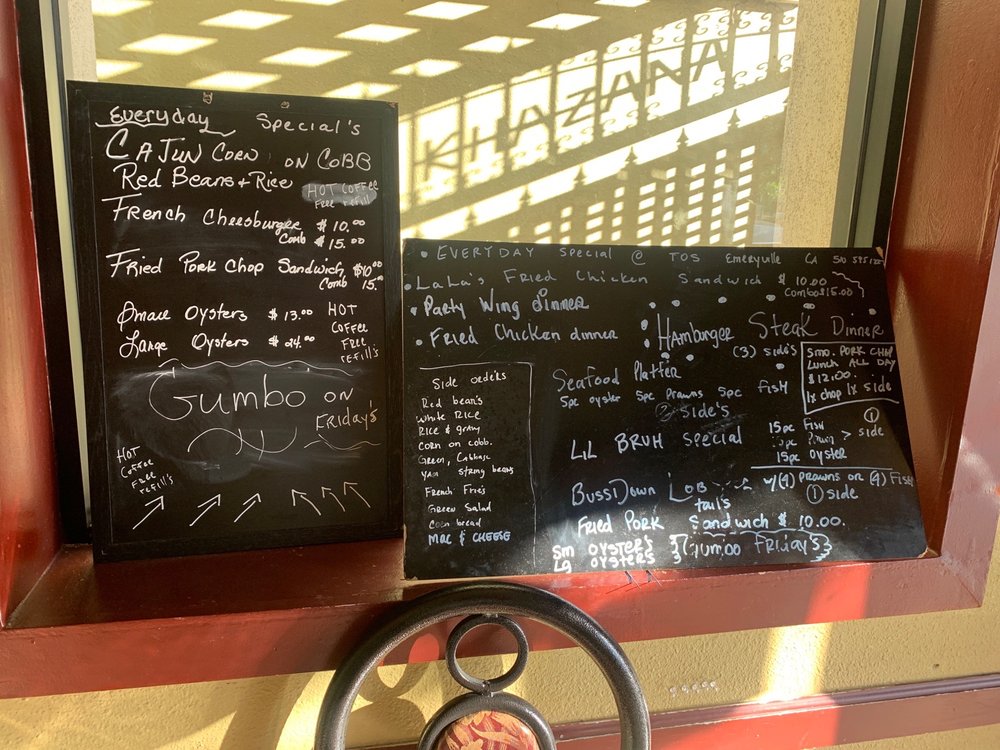 Everyday Special's
CAJUN CORN ON COBB
Red Beans + Rice
HOT COFFEE
FREE refill
French Cheesburgee $10.00
Comb $15.00
Fried Pork Chop Sandwich $10.00
Comb 15.00
Small Oysters $13.00
Large Oysters $24.00
HOT
COFFEE
FREE
refill's
Gumbo ON
FRIDAY'S
HOT
COFFEE
FREE
refill's
KHAZANA
EVERYDAY Special @ TOS Emeryville CA
LaLa's Fried Chicken Sandwich $10.00
Combo $15.00
Party Wing dinner
Fried Chicken dinner
Hamburger Steak Dinner
(3) side's
Smo. PORK CHOP
Lunch ALL DAY
$12.00.
1x chop 1x side
Seafood Platter
5pc oyster 5pc prawns 5pc FISH
(2) side's
LIL BRUH Special
15pc Fish
pc Prawn > (1) side
15pc oyster
BussiDown Lob w/(4) prawns or (4) Fish
tail's
(1) side
Fried Pork Sandwich $10.00.
Sm OYSTER'S
Lg OYSTERS
{Gumbo Friday's}
Side order's
Red bean's
White Rice
Rice & gravy
Corn on cobb.
Green, Cabbage
Yam string beans
French Fries
Green Salad
Corn bread
MAC & CHEESE